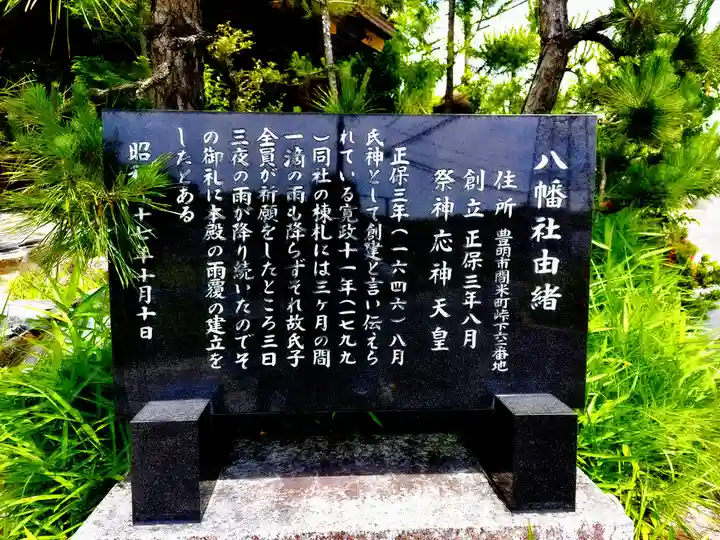 八幡社由緒
住所 豊明市間米町峠下六二番地
創立 正保三年八月
祭神 応神天皇
正保三年(一六四六)八月
氏神として創建と言い伝えら
れている寛政十一年(一七九九
)同社の棟札には三ヶ月の間
一滴の雨も降らずそれ故氏子
全員が祈願をしたところ三日
三夜の雨が降り続いたのでそ
の御礼に本殿の雨覆の建立を
したとある
昭 十 年十月十日